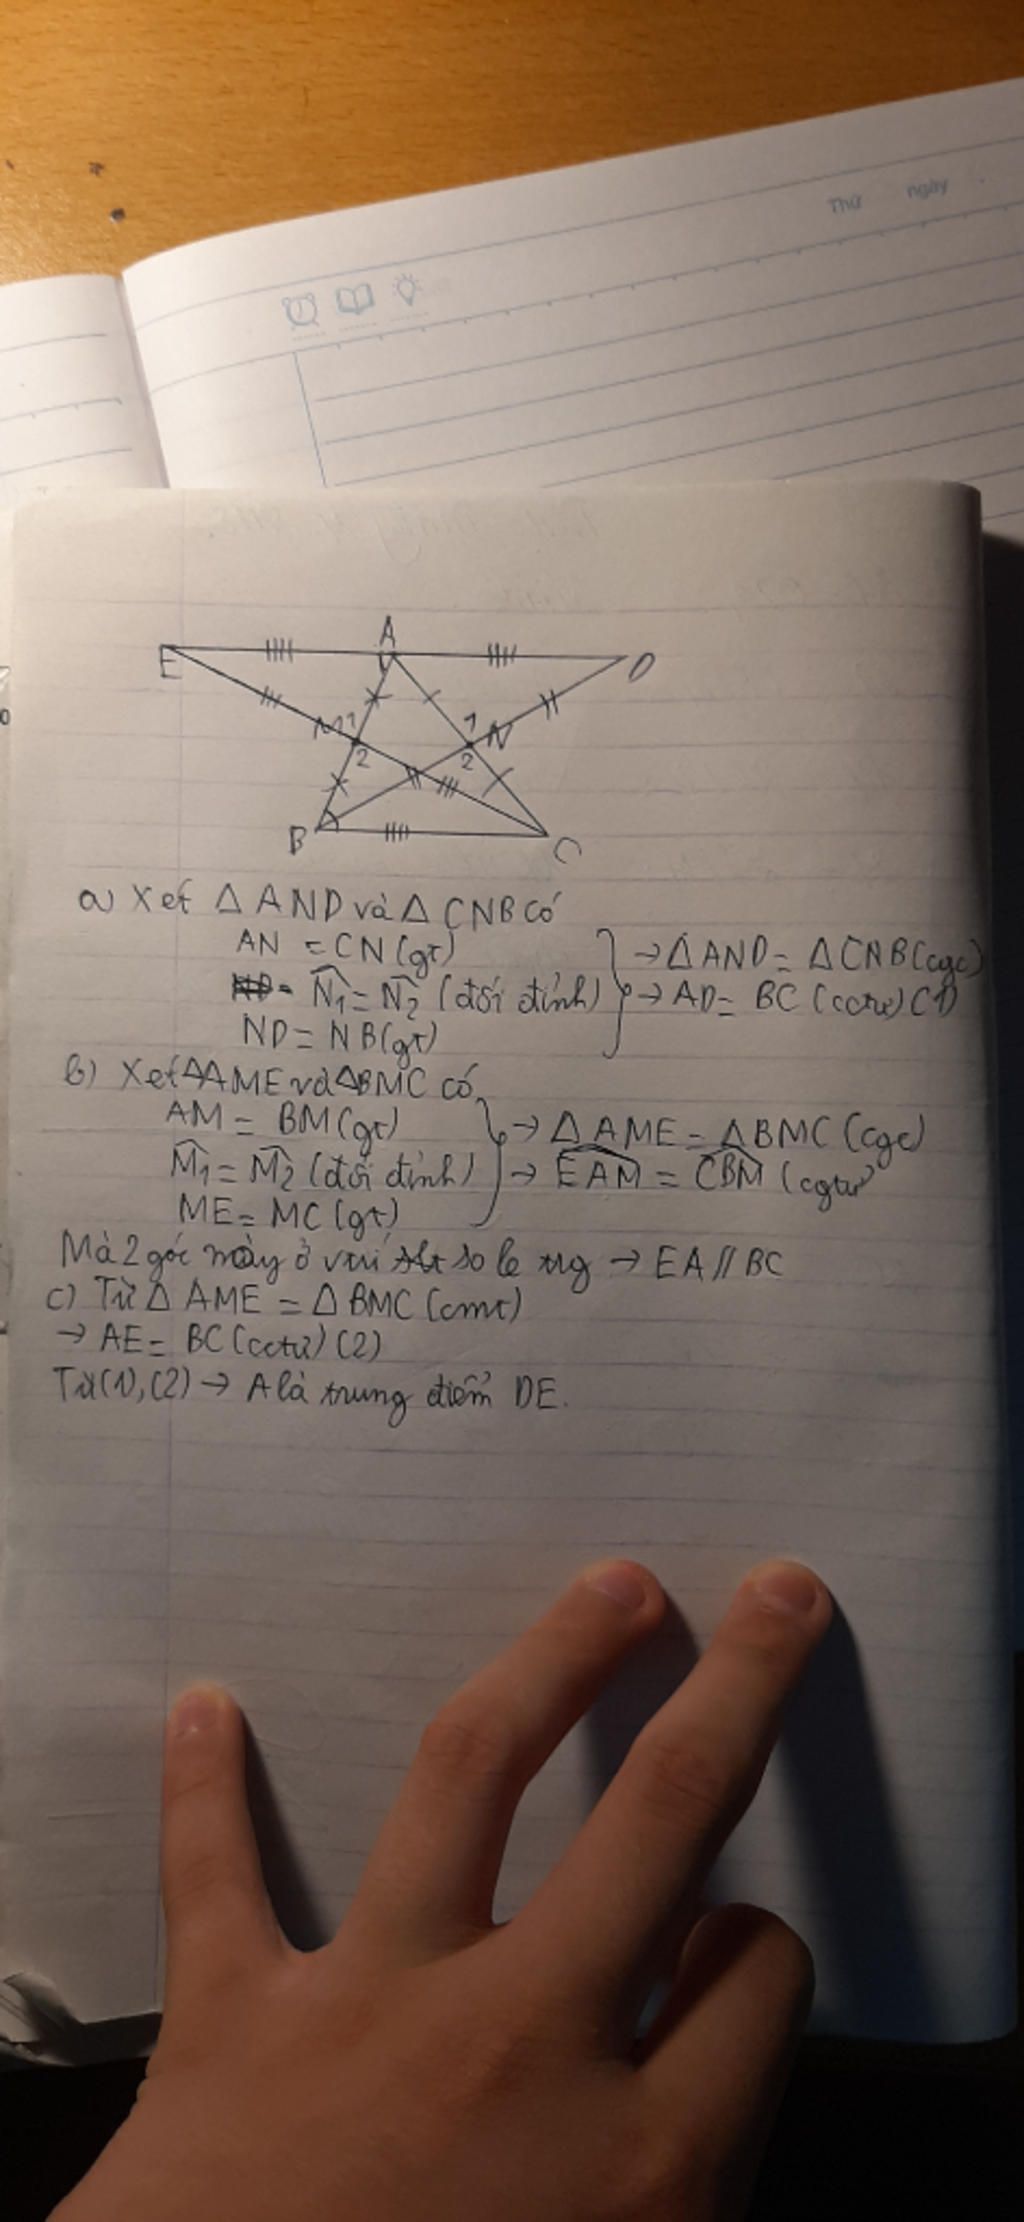 Thứ ngày
E A D
M 1 1 N
2 2
B C
a) Xét Δ AND và Δ CNB có
AN = CN (gt)
N̂₁ = N̂₂ (đối đỉnh)
ND = NB (gt)
→ Δ AND = Δ CNB (cgc)
→ AD = BC (cctư) (1)
b) Xét ΔAME và ΔBMC có
AM = BM (gt)
M̂₁ = M̂₂ (đối đỉnh)
ME = MC (gt)
→ Δ AME = Δ BMC (cgc)
→ EAM = CBM (cgtư)
Mà 2 góc này ở vtrí so le trg → EA // BC
c) Từ Δ AME = Δ BMC (cmt)
→ AE = BC (cctư) (2)
Từ (1), (2) → A là trung điểm DE.